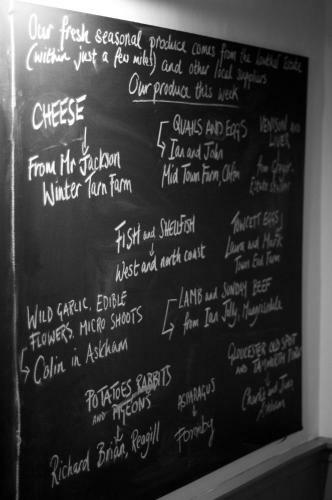 Our fresh seasonal produce comes from the Lowther Estate
(within just a few miles) and other local suppliers
Our produce this week
CHEESE
From Mr Jackson
Winter Tarn Farm
QUAILS AND EGGS
Ian and John
Mid Town Farm, Clifton
VENISON and
LIVER
from Gregor,
Estate stalker
FISH and SHELLFISH
West and north coast
FAWCETT EGGS
Laura and Mark
Town End Farm
WILD GARLIC, EDIBLE
FLOWERS, MICRO SHOOTS
Colin in Askham
LAMB and SUNDAY BEEF
from Ian Jolly,
GLOUCESTER OLD SPOT
AND
POTATOES, RABBITS
AND PIGEONS
Richard Brian, Reagill
ASPARAGUS
Formby
Charlie and
Askham